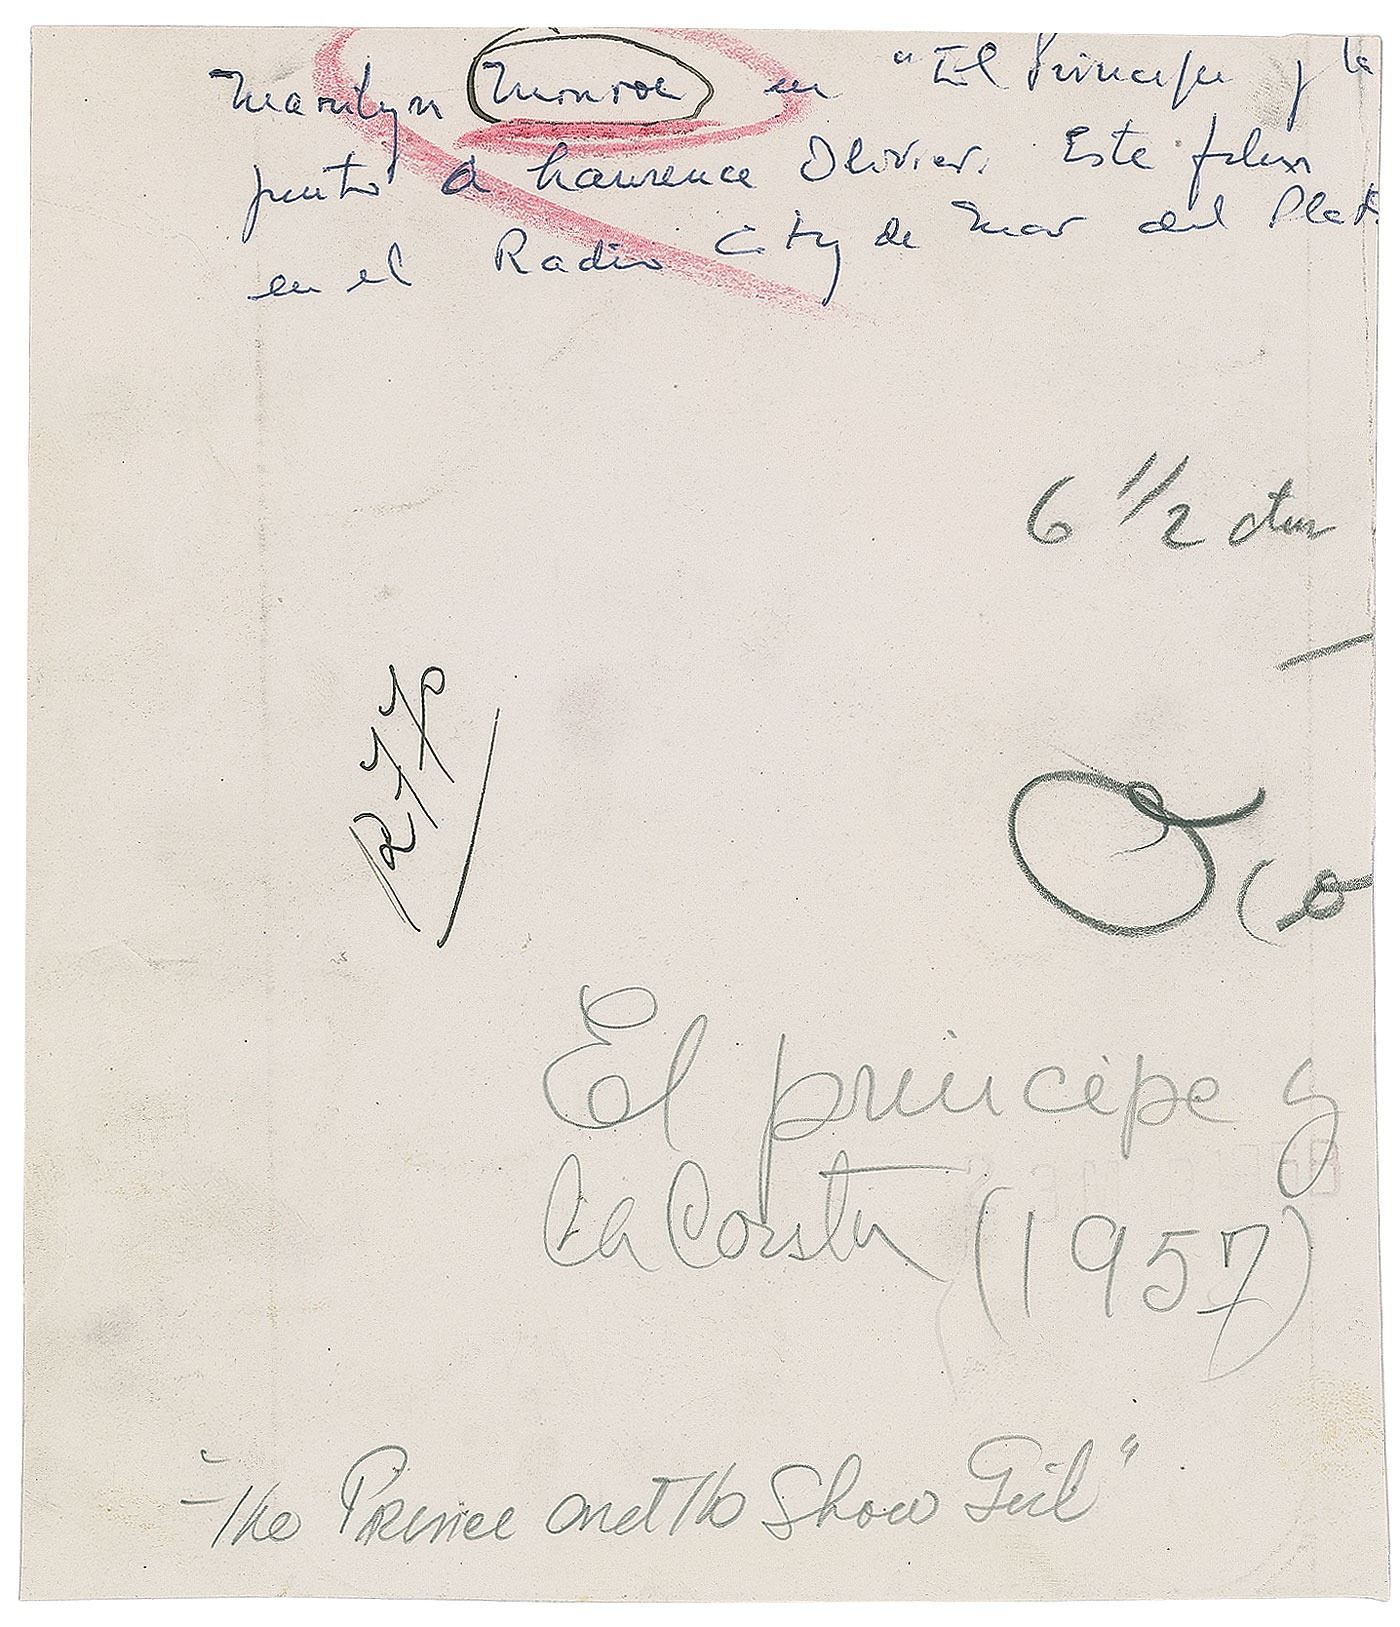 Marilyn Monroe en "El Principe y la
junto a Laurence Olivier. Este film
en el Radio City de Mar del Plat
6 1/2 ctms
El principe y
La Corista (1957)
"The Prince and The Show Girl"